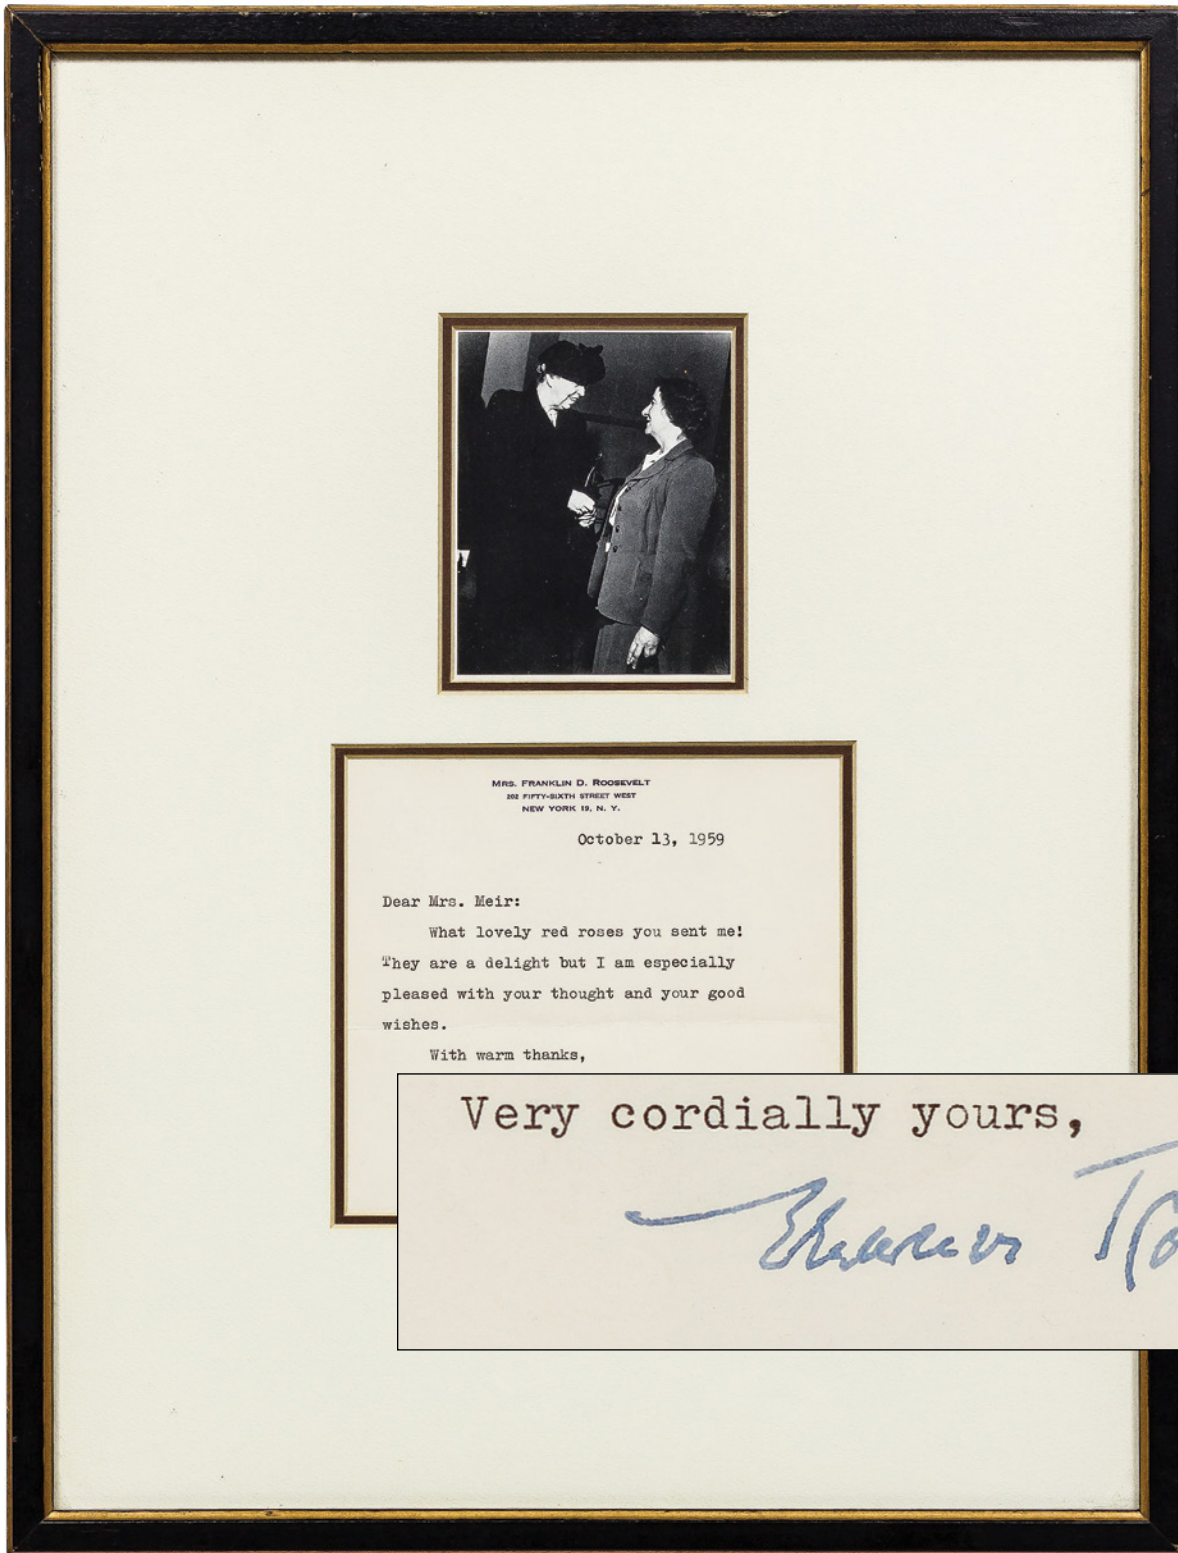 MRS. FRANKLIN D. ROOSEVELT
202 FIFTY-SIXTH STREET WEST
NEW YORK 19, N. Y.
October 13, 1959
Dear Mrs. Meir:
What lovely red roses you sent me!
They are a delight but I am especially
pleased with your thought and your good
wishes.
With warm thanks,
Very cordially yours,
Eleanor